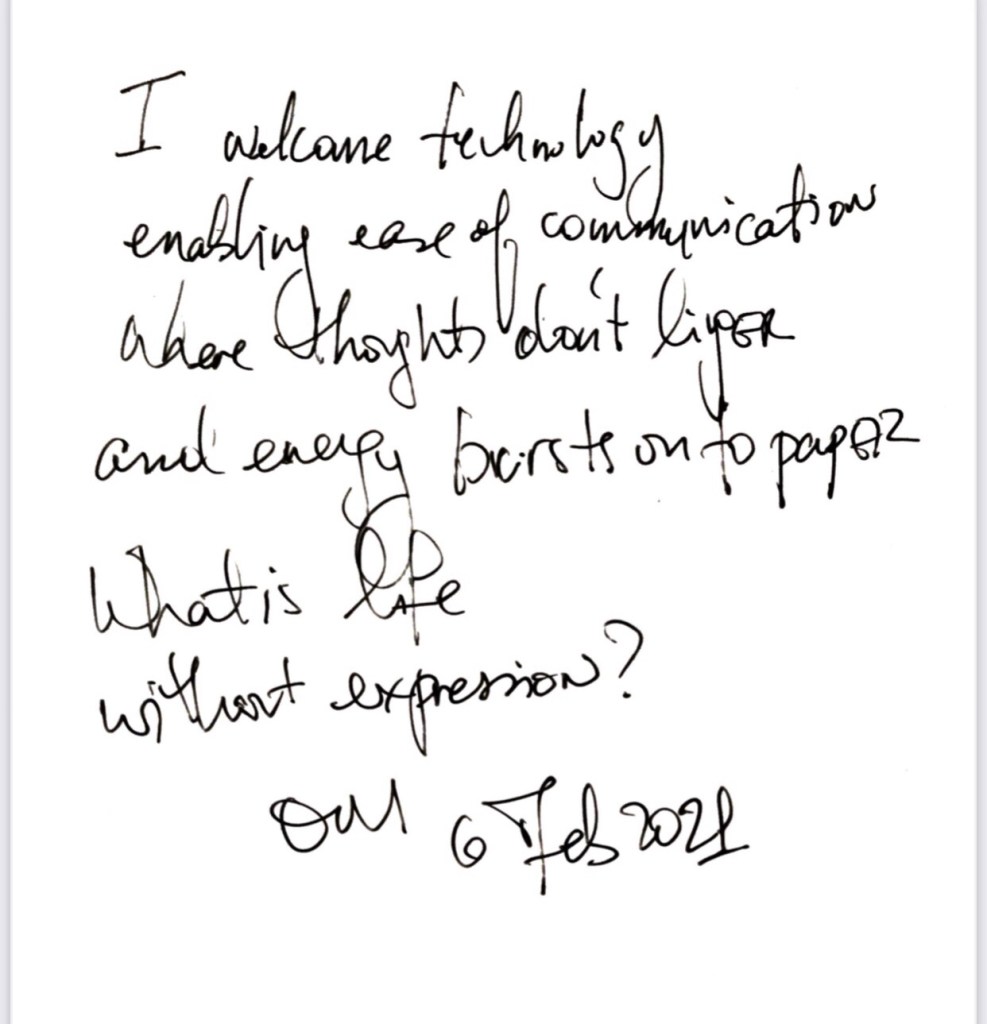 I welcome technology
enabling ease of communication
where thoughts don't linger
and energy bursts on to paper
What is life
without expression?
6 Feb 2021